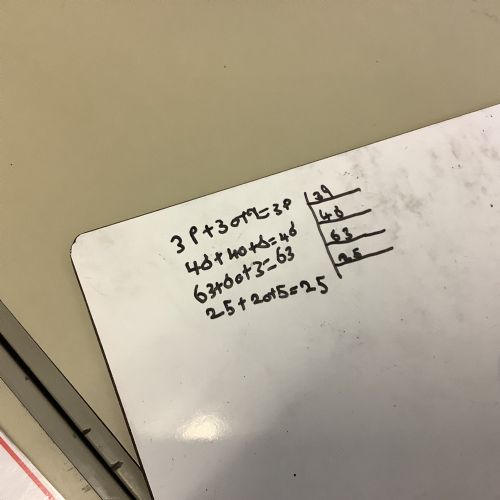 39+30+9=39
48+40+8=48
63+60+3=63
25+20+5=25
39
48
63
25